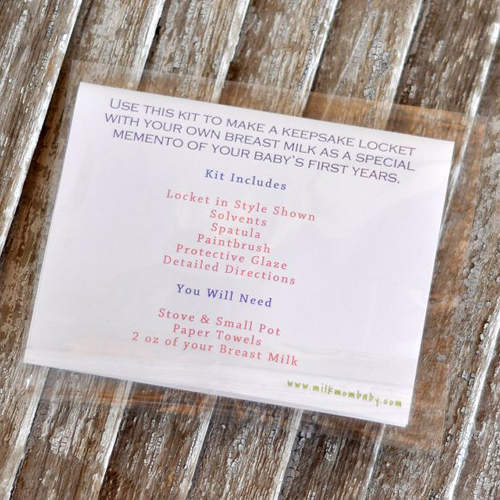 USE THIS KIT TO MAKE A KEEPSAKE LOCKET
WITH YOUR OWN BREAST MILK AS A SPECIAL
MEMENTO OF YOUR BABY'S FIRST YEARS.
Kit Includes
Locket in Style Shown
Solvents
Spatula
Paintbrush
Protective Glaze
Detailed Directions
You Will Need
Stove & Small Pot
Paper Towels
2 oz of your Breast Milk
www.milkmombaby.com